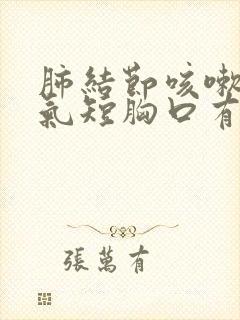 肺結節咳嗽
氣短胸口有
張萬有